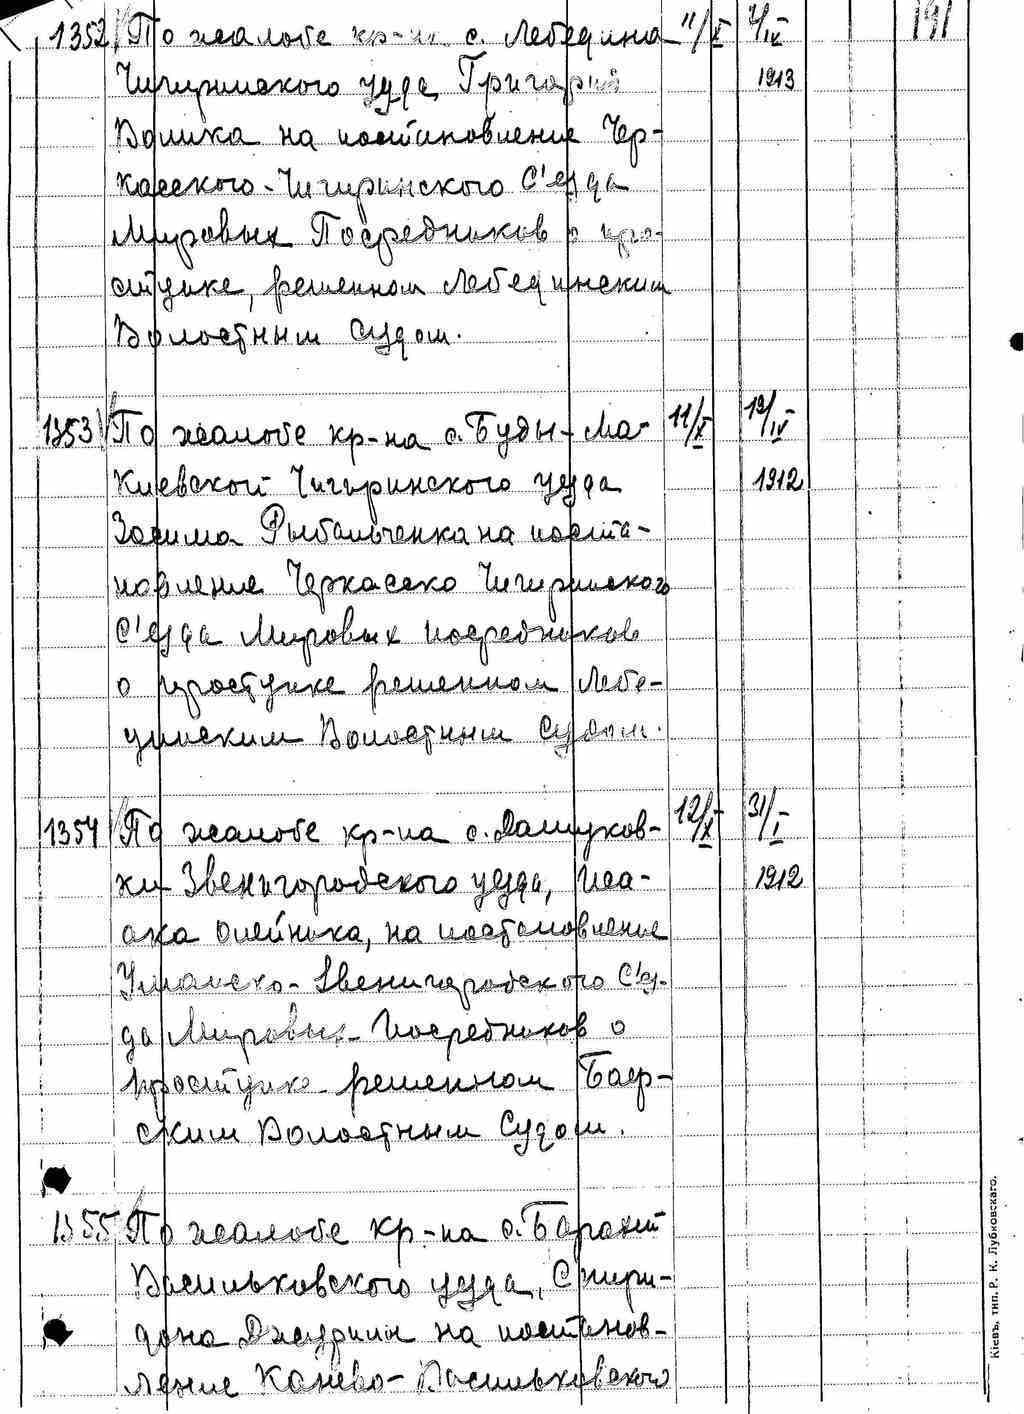 1352 По жалобе кр-на с. Лебедина 11/X 4/IX 191
Чигиринского уезда Григория 1913
Волика на постановление Чер-
касского-Чигиринского С'езда
Мировых Посредников о про-
ступке, решенном Лебединским
Волостным Судом.
1353 По жалобе кр-на с. Буды-Ма- 11/X 19/IV
киевской Чигиринского уезда 1912
Зосима Рыбальченка на поста-
новление Черкасско Чигиринского
С'езда Мировых посредников
о проступке решенном Лебе-
динским Волостным Судом.
1354 По жалобе кр-на с. Дашуков- 12/X 31/I
ки Звенигородского уезда, Иса- 1912
ака Олейника, на постановление
Уманско-Звенигородского С'ез-
да Мировых Посредников о
проступке решенном Баер-
ским Волостным Судом.
1355 По жалобе кр-на с.
Васильковского уезда, Спири-
дона на постанов-
ление Канево-Васильковского
Кіевъ, тип. Р. К. Лубковскаго.